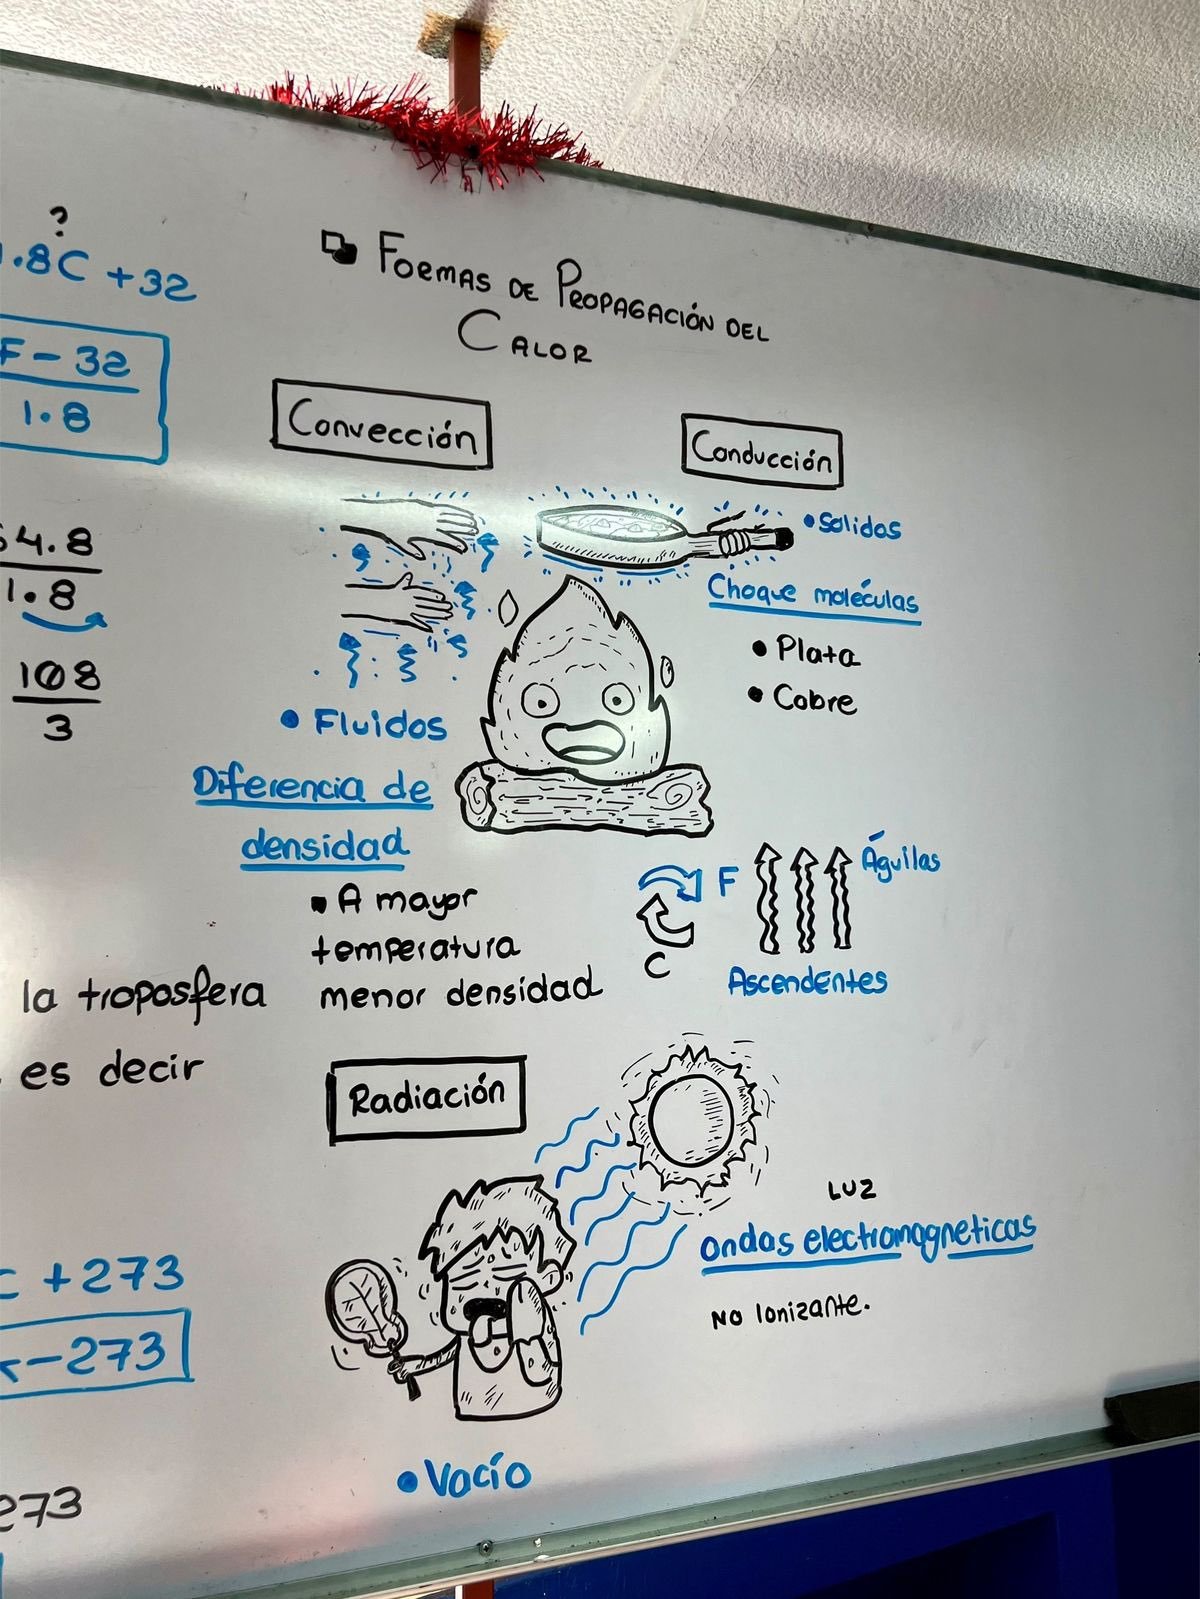 ?
.8C +32
F - 32
1.8
4.8
1.8
108
3
la troposfera
es decir
+273
-273
273
Formas de Propagación del
Calor
Convección
Conducción
• Solidos
Choque moléculas
• Plata
• Cobre
• Fluidos
Diferencia de
densidad
▪ A mayor
temperatura
menor densidad
F
C
Águilas
Ascendentes
Radiación
LUZ
ondas electromagneticas
No Ionizante.
• Vacío